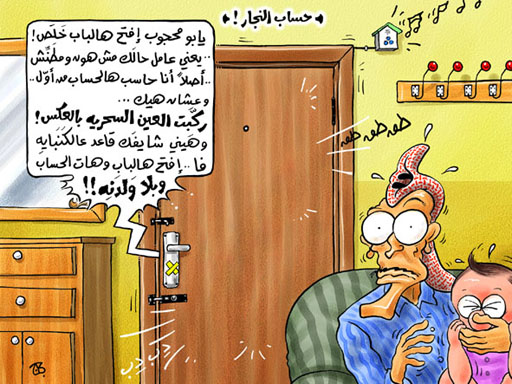 حساب النجار !
يا بو محجوب إفتح هالباب خَلَص !
.. يعني عامل حالك مش هون ومطنّش
.. أصلاً أنا حاسب هالحساب من أوّل ..
وعشان هيك ...
ركّبت العين السحريه بالعكس !
وهَيني شايفَك قاعد عالكَنَبايه
فا .. إفتح هالباب وهات الحساب
وبلا وَلدنه !!
طقـ طقـ طقـ
دب دب